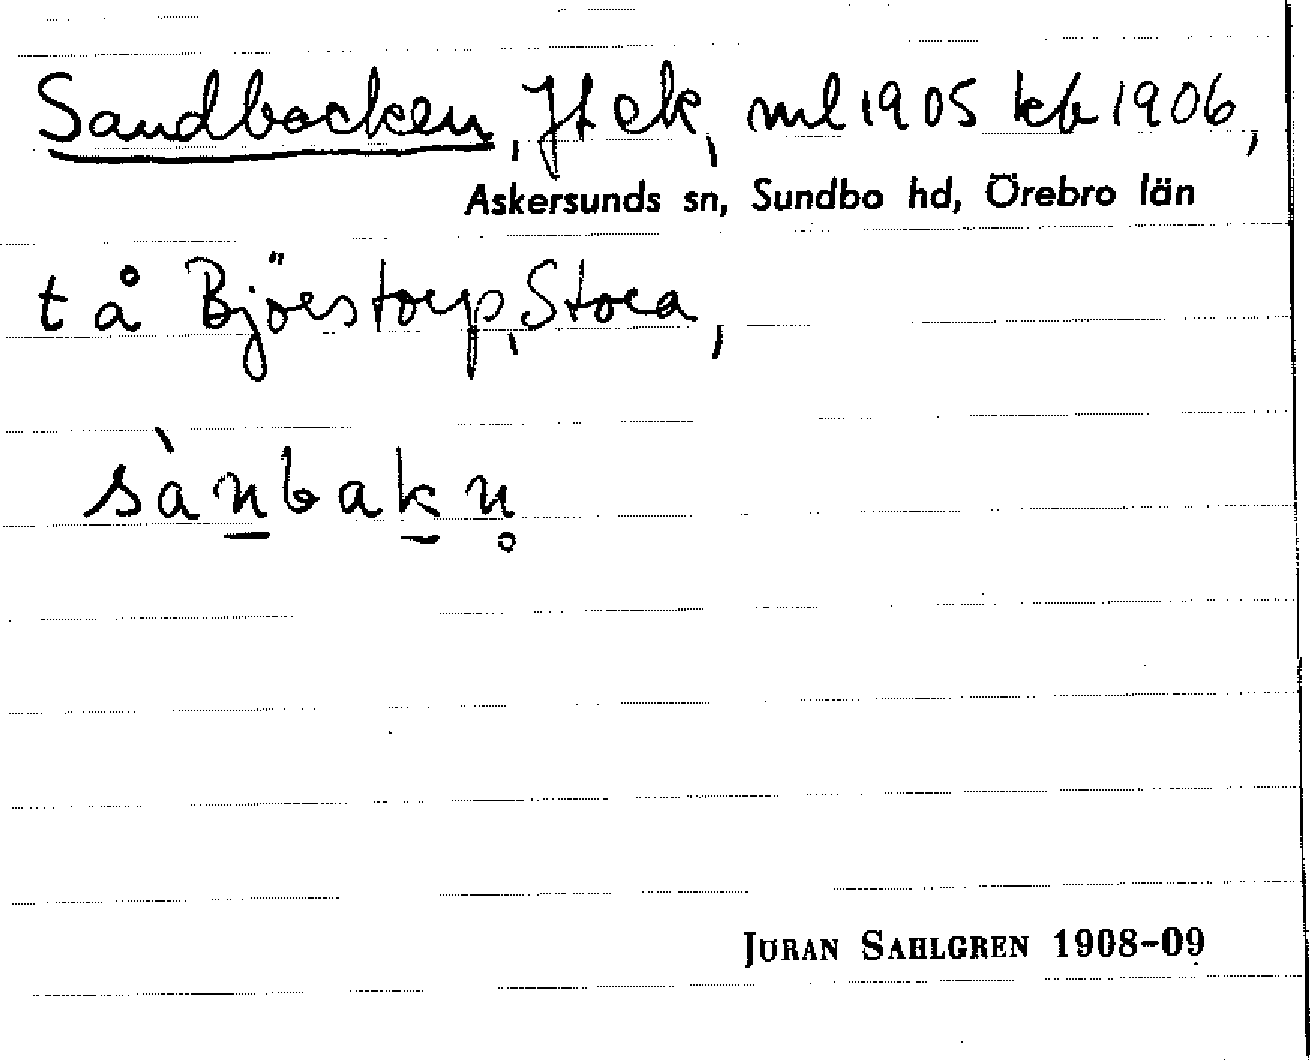 Sandbacken, Jt ek, ml 1905 kb 1906,
Askersunds sn, Sundbo hd, Örebro län
t å Björstorp, Stora,
sànbakn̥
JÖRAN SAHLGREN 1908-09